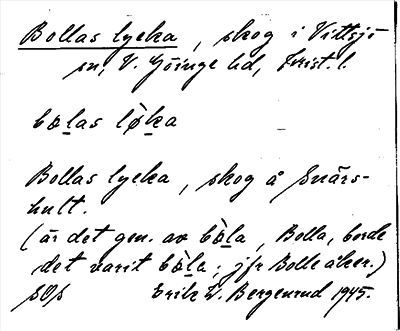 Bollas lycka, skog i Vittsjö
sn, V. Göinge hd, Krist. l.
bo̠las lø̀ka
Bollas lycka, skog å Snärs-
hult.
(är det gen. av bò̠la, Bolla, borde
det varit bò̠la; jfr Bolle åker.)
SOS Erik W. Bergenrud 1945.